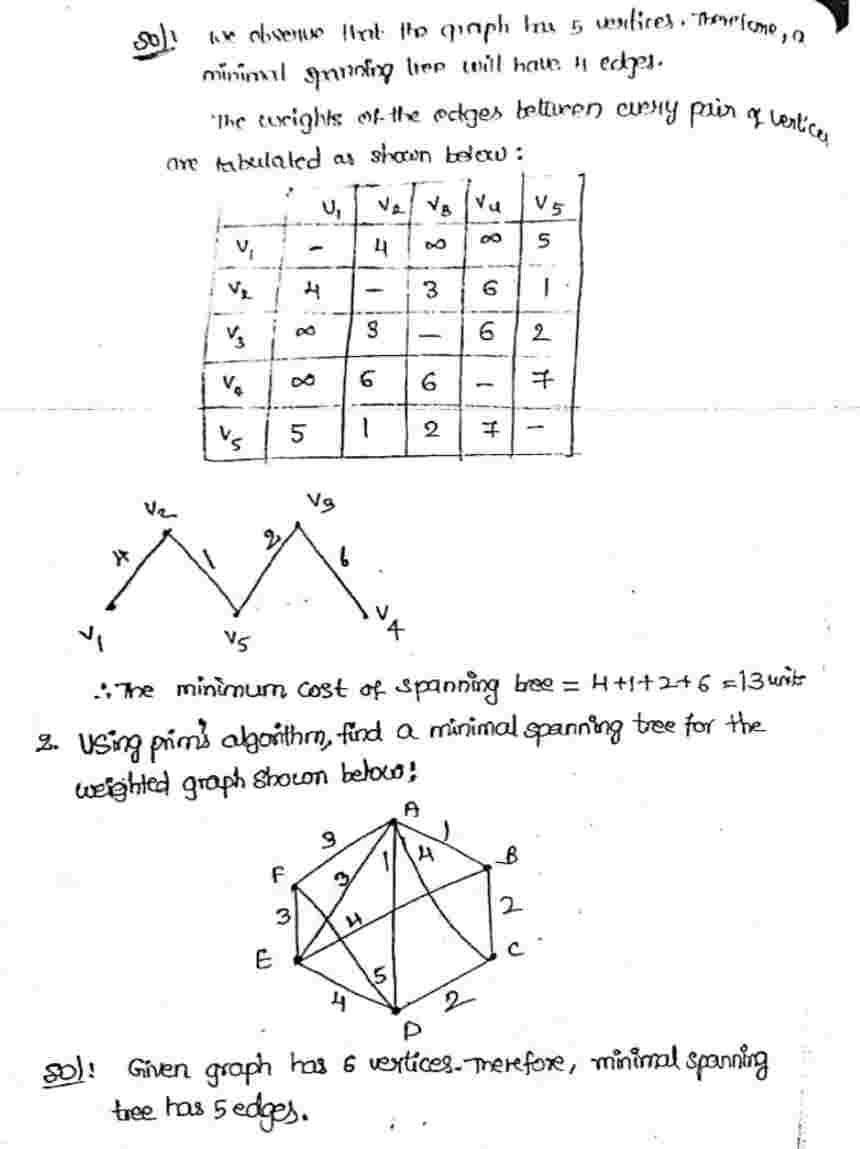 Sol: we observe that the graph has 5 vertices. Therefore, a
minimal spanning tree will have 4 edges.
The weights of the edges between every pair of vertices
are tabulated as shown below:
V1 V2 V3 V4 V5
V1 - 4 ∞ ∞ 5
V2 4 - 3 6 1
V3 ∞ 3 - 6 2
V4 ∞ 6 6 - 7
V5 5 1 2 7 -
V2 V3
4 1 2 6
V1 V5 V4
∴ The minimum cost of spanning tree = 4+1+2+6 = 13 units
2. Using prim's algorithm, find a minimal spanning tree for the
weighted graph shown below:
A
3 1
F 3 1 4 B
3 4 2
E C
5
4 2
D
Sol: Given graph has 6 vertices. Therefore, minimal spanning
tree has 5 edges.